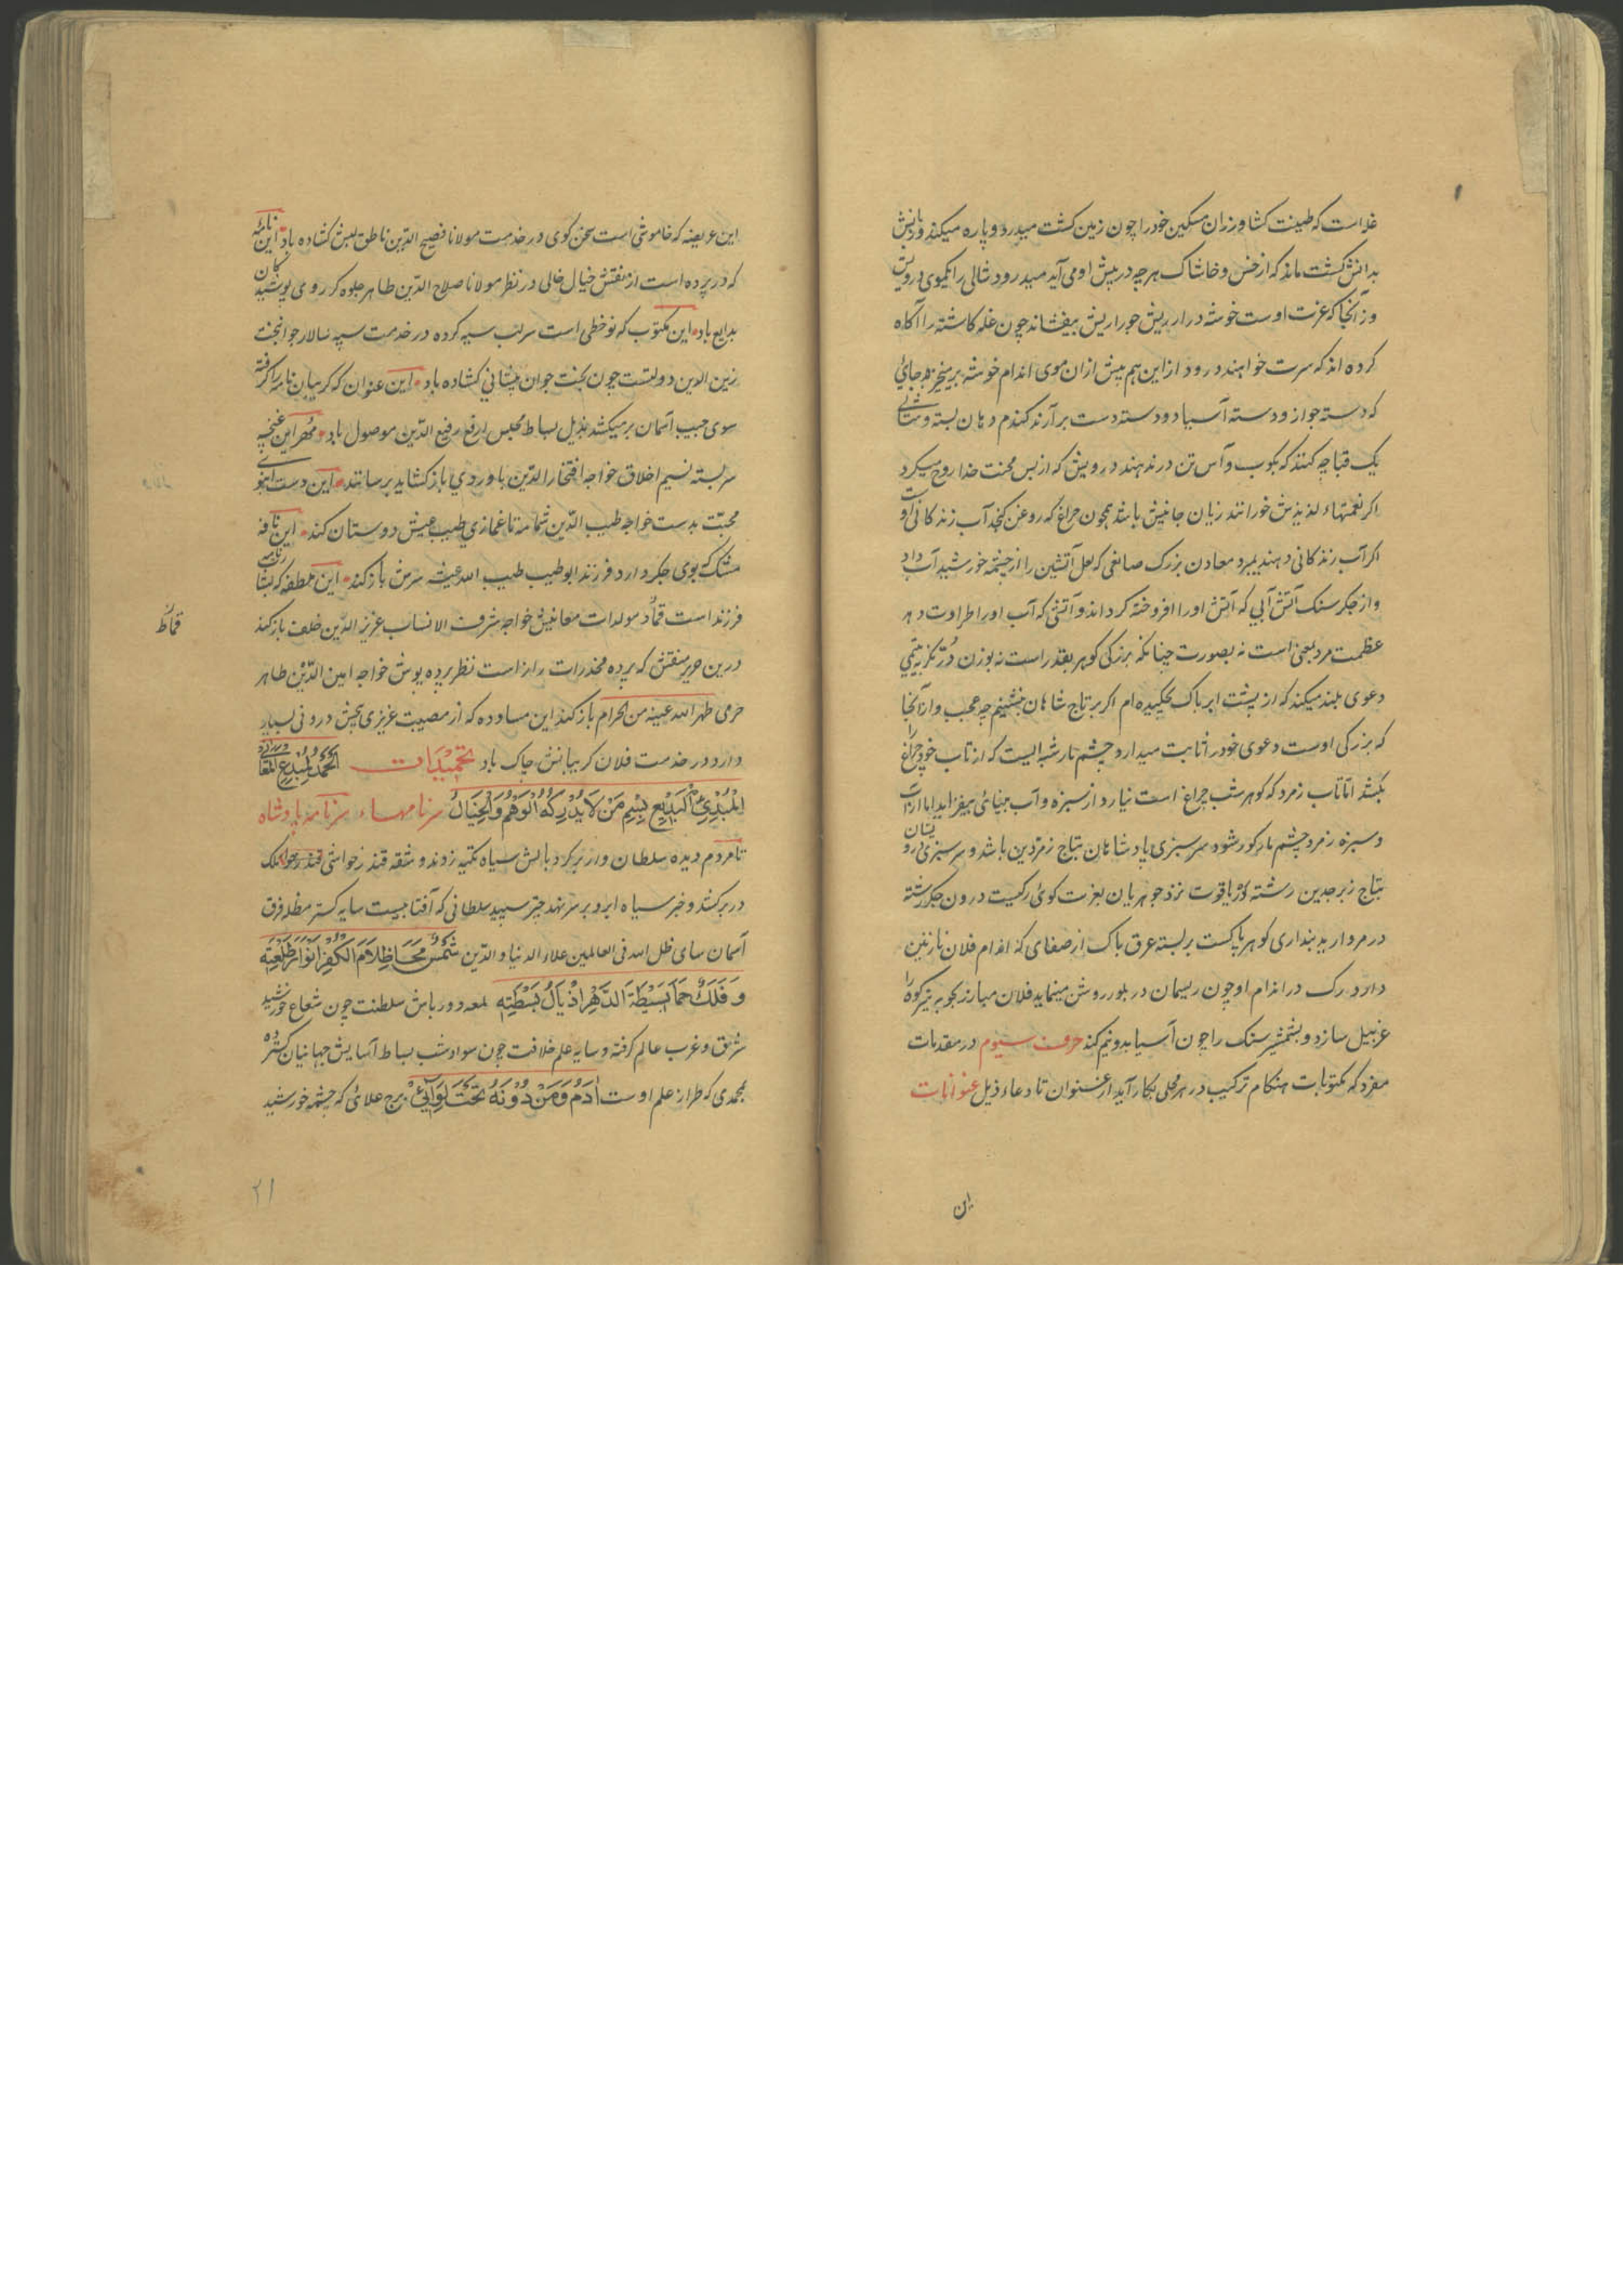 غله است که طینت کشاورزان مسکین خود را چون زمین کشت میدرد و پاره میکند و ریش
بدانش کشت ماند که از خس و خاشاک هر چه در پیش او می آید میدرود شالی را نکوی درویش
وز آنجا که عزت اوست خوشه دراز ریش جو را ریش بیفشاند چون غله کاشته را آگاه
کرده اند که سرت خواهند درود از این هم پیش ازان موی اندام خوشه برمیخیزد بجای
که دسته جواز و دسته آسیا دو دسته دست برآرند کندم دهان بسته و شالی
یک قباچه کنند که بکوب و آس تن در ندهند درویش که از بس محنت خدا روح میکرد
اگر نعمتهاء لذیذش خورانند زیان جانیش باشد همچون چراغ که روغن کنجد آب زندکانی اوست
اکر آب زندکانی دهند بمیرد معادن بزرک صانعی که لعل آتشین را از چشمه خورشید آب داد
و از جکر سنک آتش آبی که آتش اورا افروخته کرداند و آتشی که آب او را طراوت دهد
عظمت مرد بمعنی است نه بصورت چنانکه بزرکی کوهر بقدر است نه بوزن در نکر به یتیمی
دعوی بلند میکند که از پشت ابر پاک چکیده ام اکر بر تاج شاهان نشینم چه عجب و از آنجا
که بزرکی اوست دعوی خود را ثابت میدارد چشم مار شبه ایست که از تاب خود چراغ را
بکشد اما تاب زمرد که کوهر شب چراغ است نیارد از سبزه و آب بینائی بیفزاید اما از آب
و سبزه زمرد چشم مار کور شود سر سبزی پادشاهان بتاج زمردین باشد و سر سبزی درویشان
بتاج زبرجدین رشته در یاقوت نزد جوهریان بعزت کوئی رکیست درون جکر رشته
در مروارید پنداری کوهر پاکست بر بسته عرق پاک از صفای که اندام فلان نازنین
دارد رک در اندام او چون ریسمان در بلور روشن مینماید فلان مبارز بکوه به تیر کوه را
غربیل سازد و بشمشیر سنک را چون آسیا بدو نیم کند حرف سیوم در مقدمات
مفرد که مکتوبات هنکام ترکیب در هر محلی بکار آید از عنوان تا دعاء ذیل عنوانات
این
این عریضه که خاموشی است سخن کوی در خدمت مولانا فصیح الدین ناطق لبش کشاده باد این نامه
که در پرده است از نقش خیال خالی در نظر مولانا صلاح الدین طاهر جلوه کر روی پوشیدگان
بدایع باد این مکتوب که نوخطی است سر لب سیه کرده در خدمت سپه سالار جوانبخت
زین الدین دولتست چون بخت جوان پیشانی کشاده باد این عنوان که کریبان نامه را کرفته
سوی جیب آسمان بر میکشد بذیل بساط مجلس ارفع رفیع الدین موصول باد مهر این غنچه
سربسته نسیم اخلاق خواجه افتخار الدین باوردی باز کشاید برسانند این دست انبوی
محبت بدست خواجه طیب الدین شمامه تا غمازی طیب عیش دوستان کند این نافه
مشک که بوی جکر دارد فرزند ابو طیب طیب الله عیشه سرش باز کند این ملطفه که
فرزند است قماد مولدات معانیش خواجه شرف الانساب عزیز الدین خلف باز کند
قماط
درین حریر منقش که پرده مخدرات راز است نظر پرده پوش خواجه امین الدین طاهر
حرمی طهر الله عینه من الحرام باز کند این مساوده که از مصیبت عزیزی بخش درونی بسیار
دارد در خدمت فلان کریبانش چاک باد تحمیدات الحمد لمبدع المعانی
المبدئ البدیع بسم من لا یدرکه الوهم والخیال سرنامهاء سرنامه پادشاه
تا مردم دیده سلطان وار بر کرد بالش سیاه تکیه زدند و شقه قندز حواشی
در بر کشد و خبر سیاه ابرو بر سر نهد چتر سپید سلطانی که آفتابیست سایه کستر مظله فرق
آسمان سای ظل الله فی العالمین علاء الدنیا و الدین شمس محا ظلام الکفر انوار طلعته
و فلک حما بسیطة الدهر اذیال بسطته لمعه دورباش سلطنت چون شعاع خورشید
شرق و غرب عالم کرفته و سایه علم خلافت چون سواد شب بساط آسایش جهانیان کسترده
محمدی که طراز علم اوست آدم ومن دونه تحت لوائی برج علائی که چشمه خورشید
۲۱